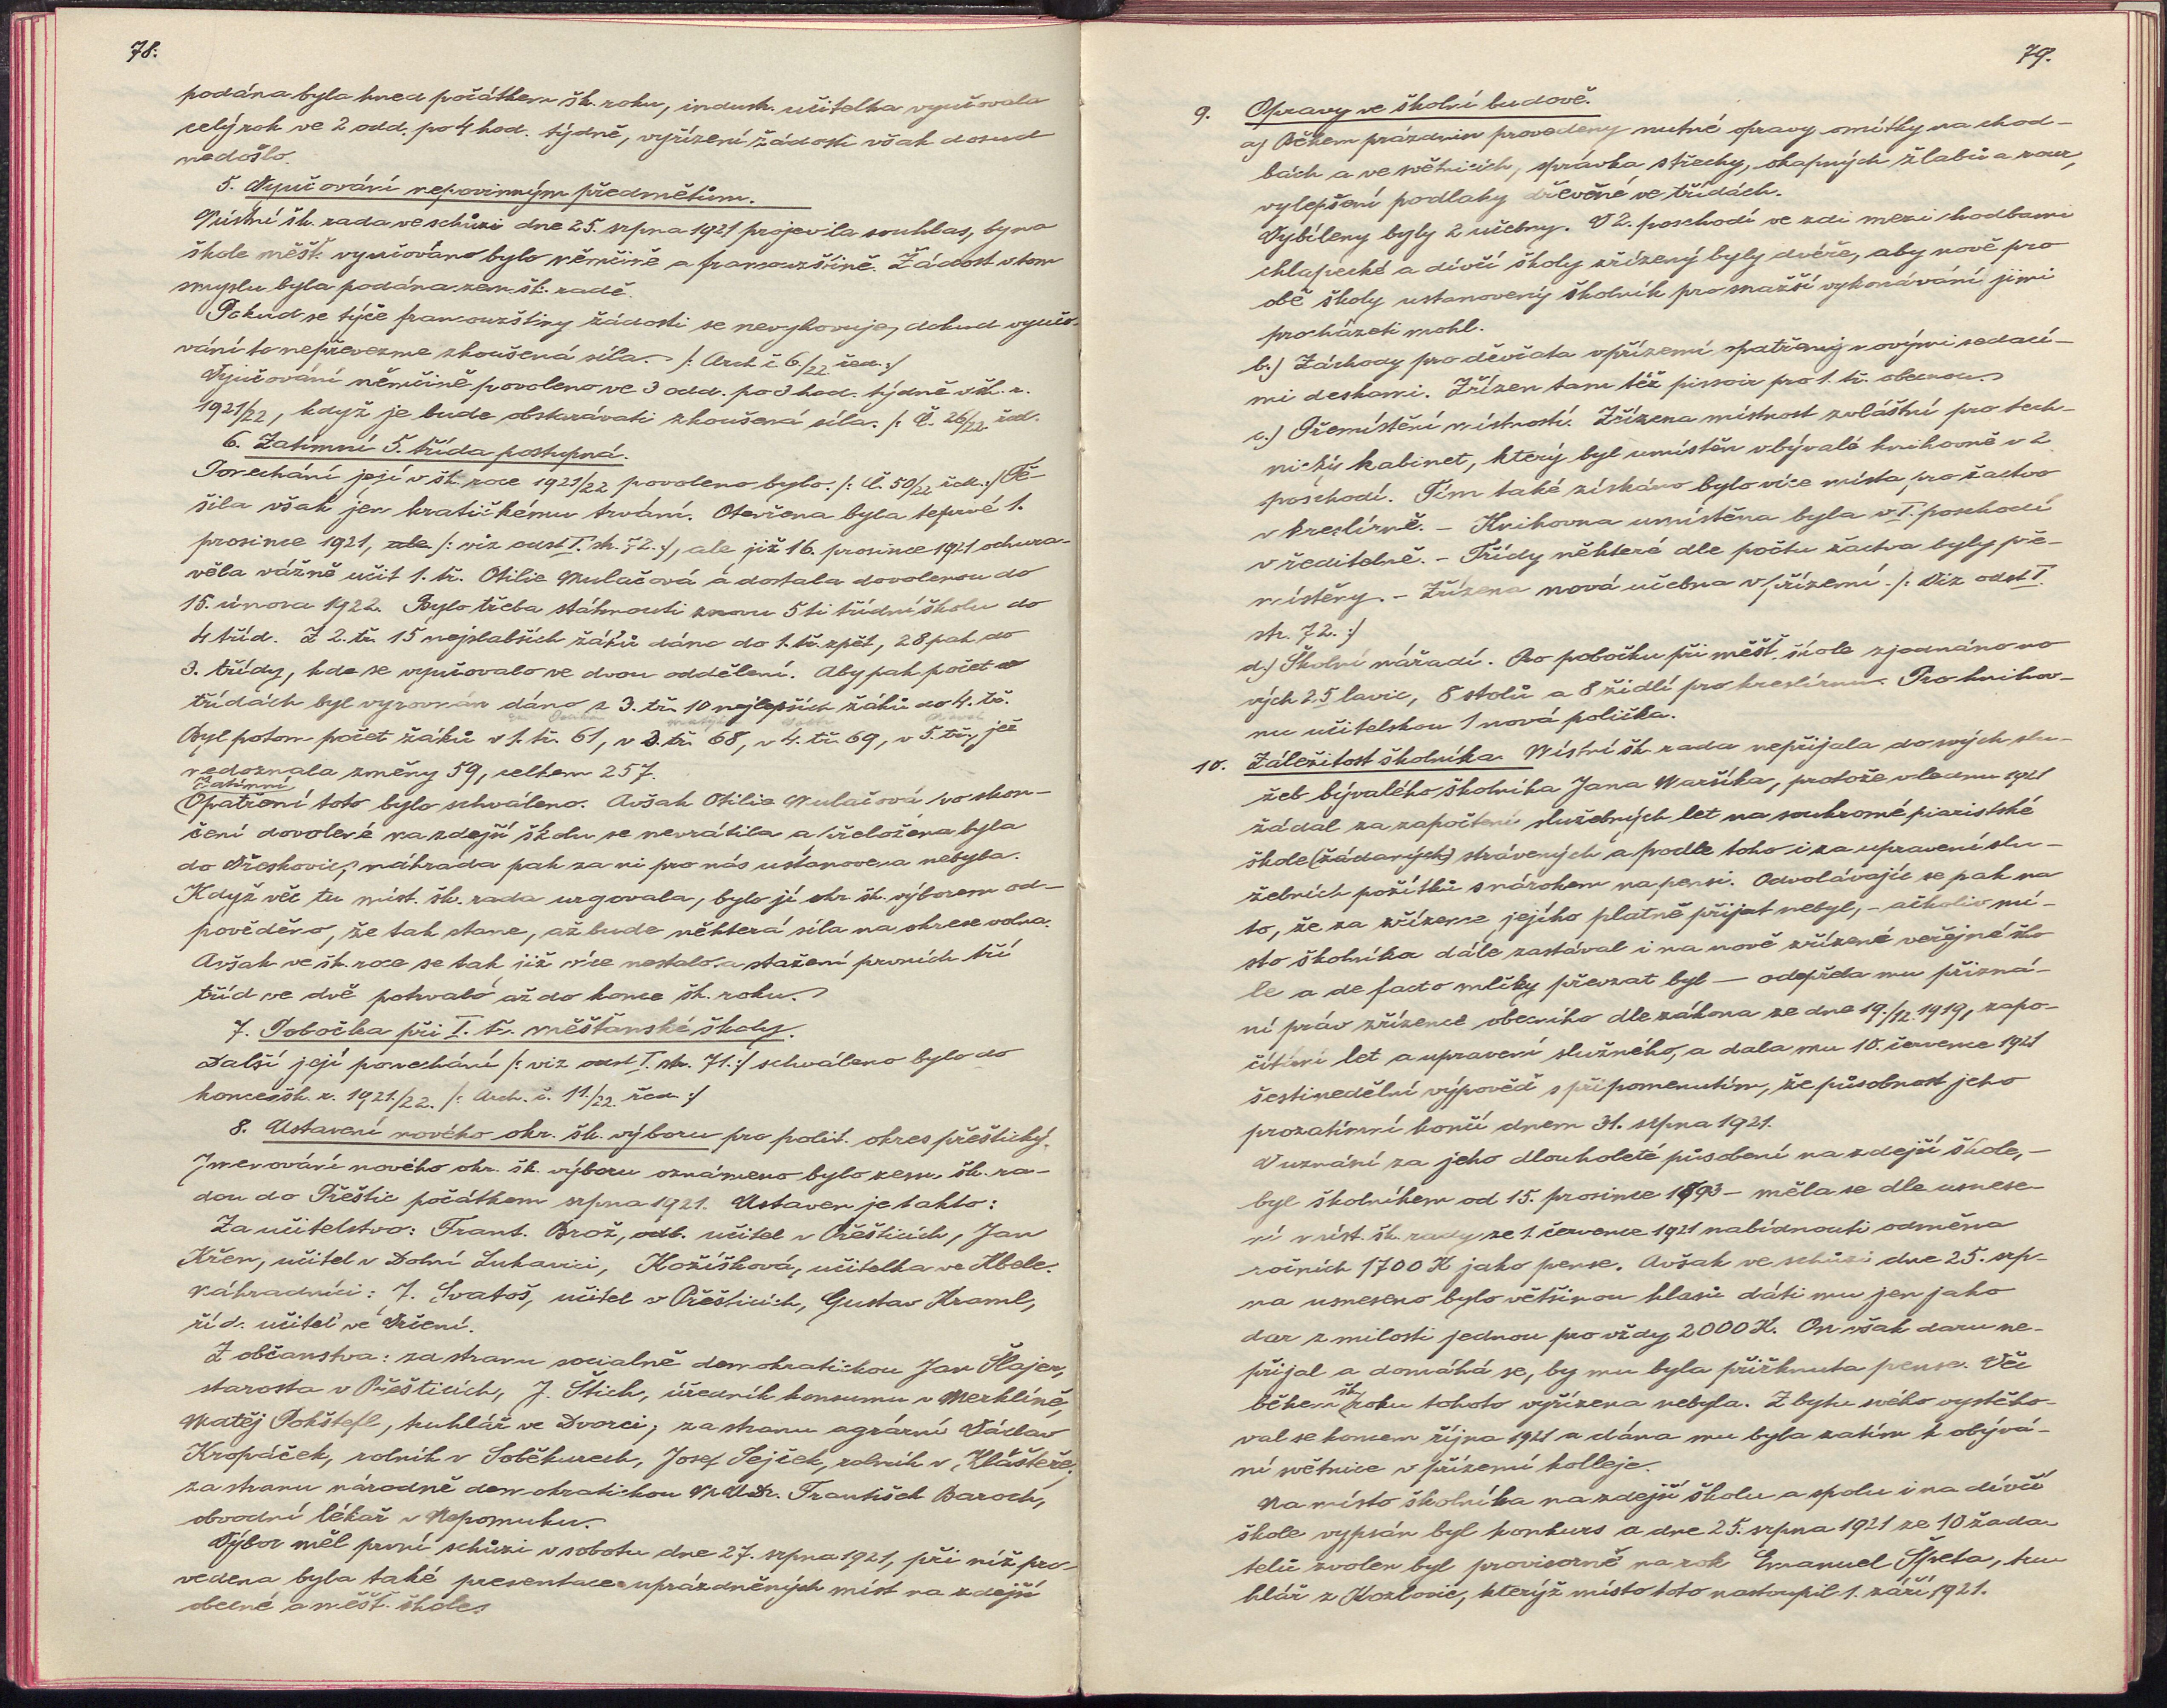 78.
podána byla hned počátkem šk. roku, industr. učitelka vyučovala
celý rok ve 2 odd. po 4 hod. týdně, vyřízení žádosti však dosud
nedošlo.
5. Vyučování nepovinným předmětům.
Místní šk. rada ve schůzi dne 25. srpna 1921 projevila souhlas, by na
škole měšť. vyučováno bylo němčině a francouzštině. Žádost v tom
smyslu byla podána zem. šk. radě.
Pokud se týče francouzštiny žádosti se nevyhovuje, dokud vyučo-
vání to nepřevezme zkoušená síla. /: Arch č. 6./22 řed. :/
Vyučování němčině povoleno ve 3 odd. po 3 hod. týdně v šk. r.
1921/22, když je bude obstarávati zkoušená síla. /: Č. 26/22 řed.
6. Zatímní 5. třída postupná.
Ponechání její v šk. roce 1921/22 povoleno bylo. /: Č. 50/22 řed. :/ Tě-
šila však jen kratičkému trvání. Otevřena byla teprvé 1.
prosince 1921, ale /: viz odst I. str. 72. :/, ale již 16. prosince 1921 ochura-
věla vážně učit 1. tř. Otilie Mulačová a dostala dovolenou do
15. února 1922. Bylo třeba stáhnouti znovu 5ti třídní školu do
4 tříd. Z 2. tř. 15 nejslabších žáků dáno do 1. tř. zpět, 28 pak do
3. třídy, kde se vyučovalo ve dvou oddělení. Aby pak počet v
třídách byl vyrovnán dáno z 3. tř. 10 nejlepších žáků do 4. tř.
Byl potom počet žáků v 1. tř. 61, v 3. tř. 68, v 4. tř. 69, v 5. tř., jež
nedoznala změny 59, celkem 257.
Zatímní
Opatření toto bylo schváleno. Avšak Otilie Mulačová po skon-
čení dovolené na zdejší školu se nevrátila a přeložena byla
do Vřeskovic, náhrada pak za ni pro nás ustanovena nebyla.
Když věc tu míst. šk. rada urgovala, bylo jí okr. šk. výborem od-
pověděno, že tak stane, až bude některá síla na okrese volna.
Avšak ve šk. roce se tak již více nestalo a stažení prvních tří
tříd ve dvě potrvalo až do konce šk. roku.
7. Pobočka při I. tř. měšťanské školy.
Další její ponechání /: viz odst I. str. 71. :/ schváleno bylo do
konce šk. r. 1921./22. /: Arch. č. 11./22. řed. :/
8. Ustavení nového okr. šk. výboru pro polit. okres přeštický.
Jmenování nového okr. šk. výboru oznámeno bylo zem. šk. ra-
dou do Přeštic počátkem srpna 1921. Ustaven je takto:
Za učitelstvo: Frant. Brož, odb. učitel v Přešticích, Jan
Křen, učitel v Dolní Lukavici, Kožíšková, učitelka ve Kbele.
Náhradníci: J. Svatoš, učitel v Přešticích, Gustav Kraml,
říd. učitel ve Vrčeni.
Z občanstva: za stranu socialně demokratickou Jan Šlajer,
starosta v Přešticích, J. Štich, úředník konsumu v Merklíně,
Matěj Pokštefl, truhlář ve Dvorci; za stranu agrární Václav
Kropáček, rolník v Soběkurech, Josef Sejček, rolník v Klášteře,
za stranu národně demokratickou MUDr. František Baroch,
obvodní lékař v Nepomuku.
Výbor měl první schůzi v sobotu dne 27. srpna 1921, při níž pro-
vedena byla také presentace uprázdněných míst na zdejší
obecné a měšť. škole.
79.
9. Opravy ve školní budově.
a) Během prázdnin provedeny nutné opravy omítky na chod-
bách a ve světnicích, správka střechy, okapných žlabů a rour,
vylepšení podlahy dřevěné ve třídách.
Vybíleny byly 2 učebny. V 2. poschodí ve zdi mezi chodbami
chlapecké a dívčí školy zřízeny byly dvéře, aby nově pro
obě školy ustanovený školník pro snažší vykonávání jimi
procházeti mohl.
b.) Záchody pro děvčata v přízemí opatřeny novými sedací-
mi deskami. Zřízen tam též pissoir pro 1. tř. obecnou.
c.) Přemístění místností. Zřízena místnost zvláštní pro tech-
nický kabinet, který byl umístěn v bývalé knihovně v 2
poschodí. Tím také získáno bylo více místa pro žactvo
v kreslírně. – Knihovna umístěna byla v I. poschodí
v ředitelně. – Třídy některé dle počtu žactva byly pře-
místěny. – Zřízena nová učebna v přízemí. /: Viz odst I.
str. 72. :/
d.) Školní nářadí. Pro pobočku při měšť. škole zjednáno no
vých 25 lavic, 8 stolů a 8 židlí pro kreslírnu. Pro knihov-
nu učitelskou 1 nová polička.
10. Záležitost školníka. Místní šk. rada nepřijala do svých slu-
žeb bývalého školníka Jana Maršíka, protože v lednu 1921
žádal za započtení služebných let na soukromé piaristské
škole (žádaných) strávených a podle toho i za upravení slu-
žebních požitků s nárokem na pensi. Odvolávajíc se pak na
to, že za zřízence jejího platně přijat nebyl, – ačkoliv mí-
sto školníka dále zastával i na nově zřízené veřejné ško
le a de facto mlčky převzat byl – odepřela mu přizná-
ní práv zřízence obecního dle zákona ze dne 19./12. 1919, zapo-
čítání let a upravení služného, a dala mu 10. července 1921
šestinedělní výpověď s připomenutím, že působnost jeho
prozatímní končí dnem 31. srpna 1921.
V uznání za jeho dlouholeté působení na zdejší škole, –
byl školníkem od 15. prosince 1893 – měla se dle usnese-
ní míst. šk. rady ze 1. července 1921 nabídnouti odměna
ročních 1700 K jako pense. Avšak ve schůzi dne 25. srp-
na usneseno bylo většinou hlasů dáti mu jen jako
dar z milosti jednou pro vždy 2000 K. On však daru ne-
přijal a domáhá se, by mu byla přiřknuta pense. Věc
během šk. roku tohoto vyřízena nebyla. Z bytu svého vystěho-
val se koncem října 1921 a dána mu byla zatím k obývá-
ní světnice v přízemí kolleje.
Na místo školníka na zdejší školu a spolu i na dívčí
škole vypsán byl konkurs a dne 25. srpna 1921 ze 10 žada
telů zvolen byl provisorně na rok Emanuel Špeta, tru
hlář z Kozlovic, kterýž místo toto nastoupil 1. září 1921.